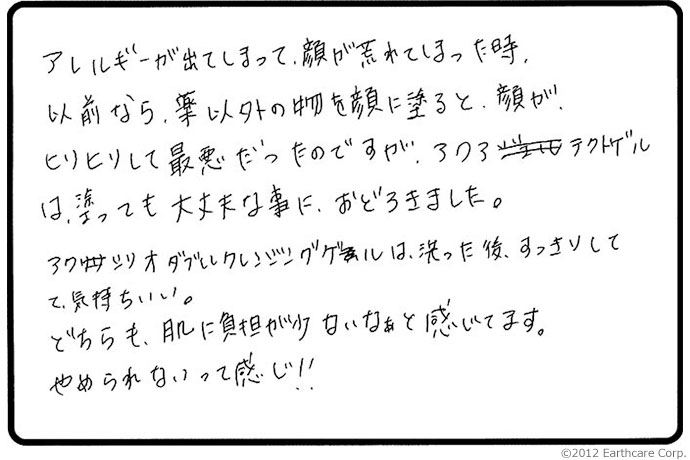 アレルギーが出てしまって、顔が荒れてしまった時、
以前なら、薬以外の物を顔に塗ると、顔が、
ヒリヒリして最悪だったのですが、アクアテクトゲル
は、塗っても大丈夫な事に、おどろきました。
アクサリオダブルクレンジングゲールは、洗った後、すっきりして
て、気持ちいい。
どちらも、肌に負担が少ないなぁと感じてます。
やめられないって感じ!!
©2012 Earthcare Corp.